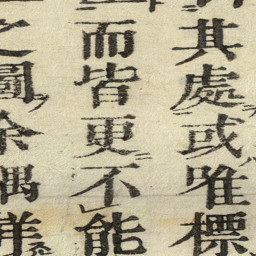 其處或唯標
而皆更不能
之圖余偶